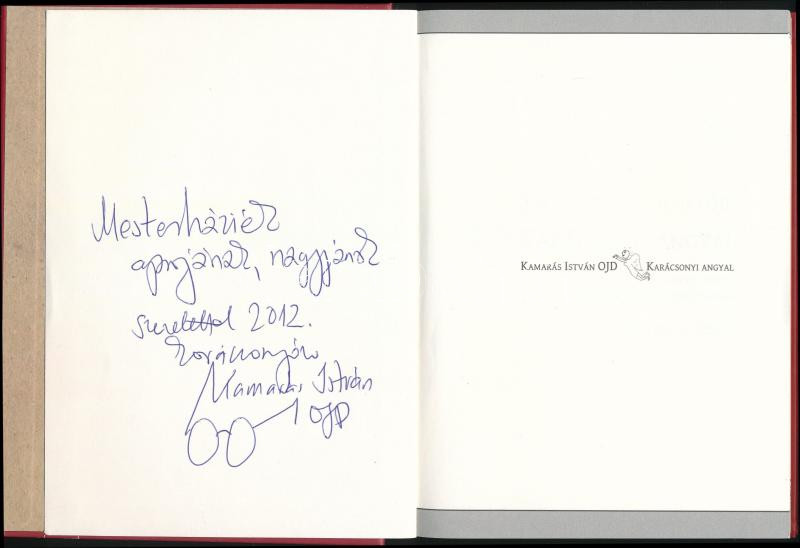 Mesterháziék
aprajának, nagyjának
szeretettel 2012.
karácsonyán
Kamarás István
OJD
Kamarás István OJD Karácsonyi angyal